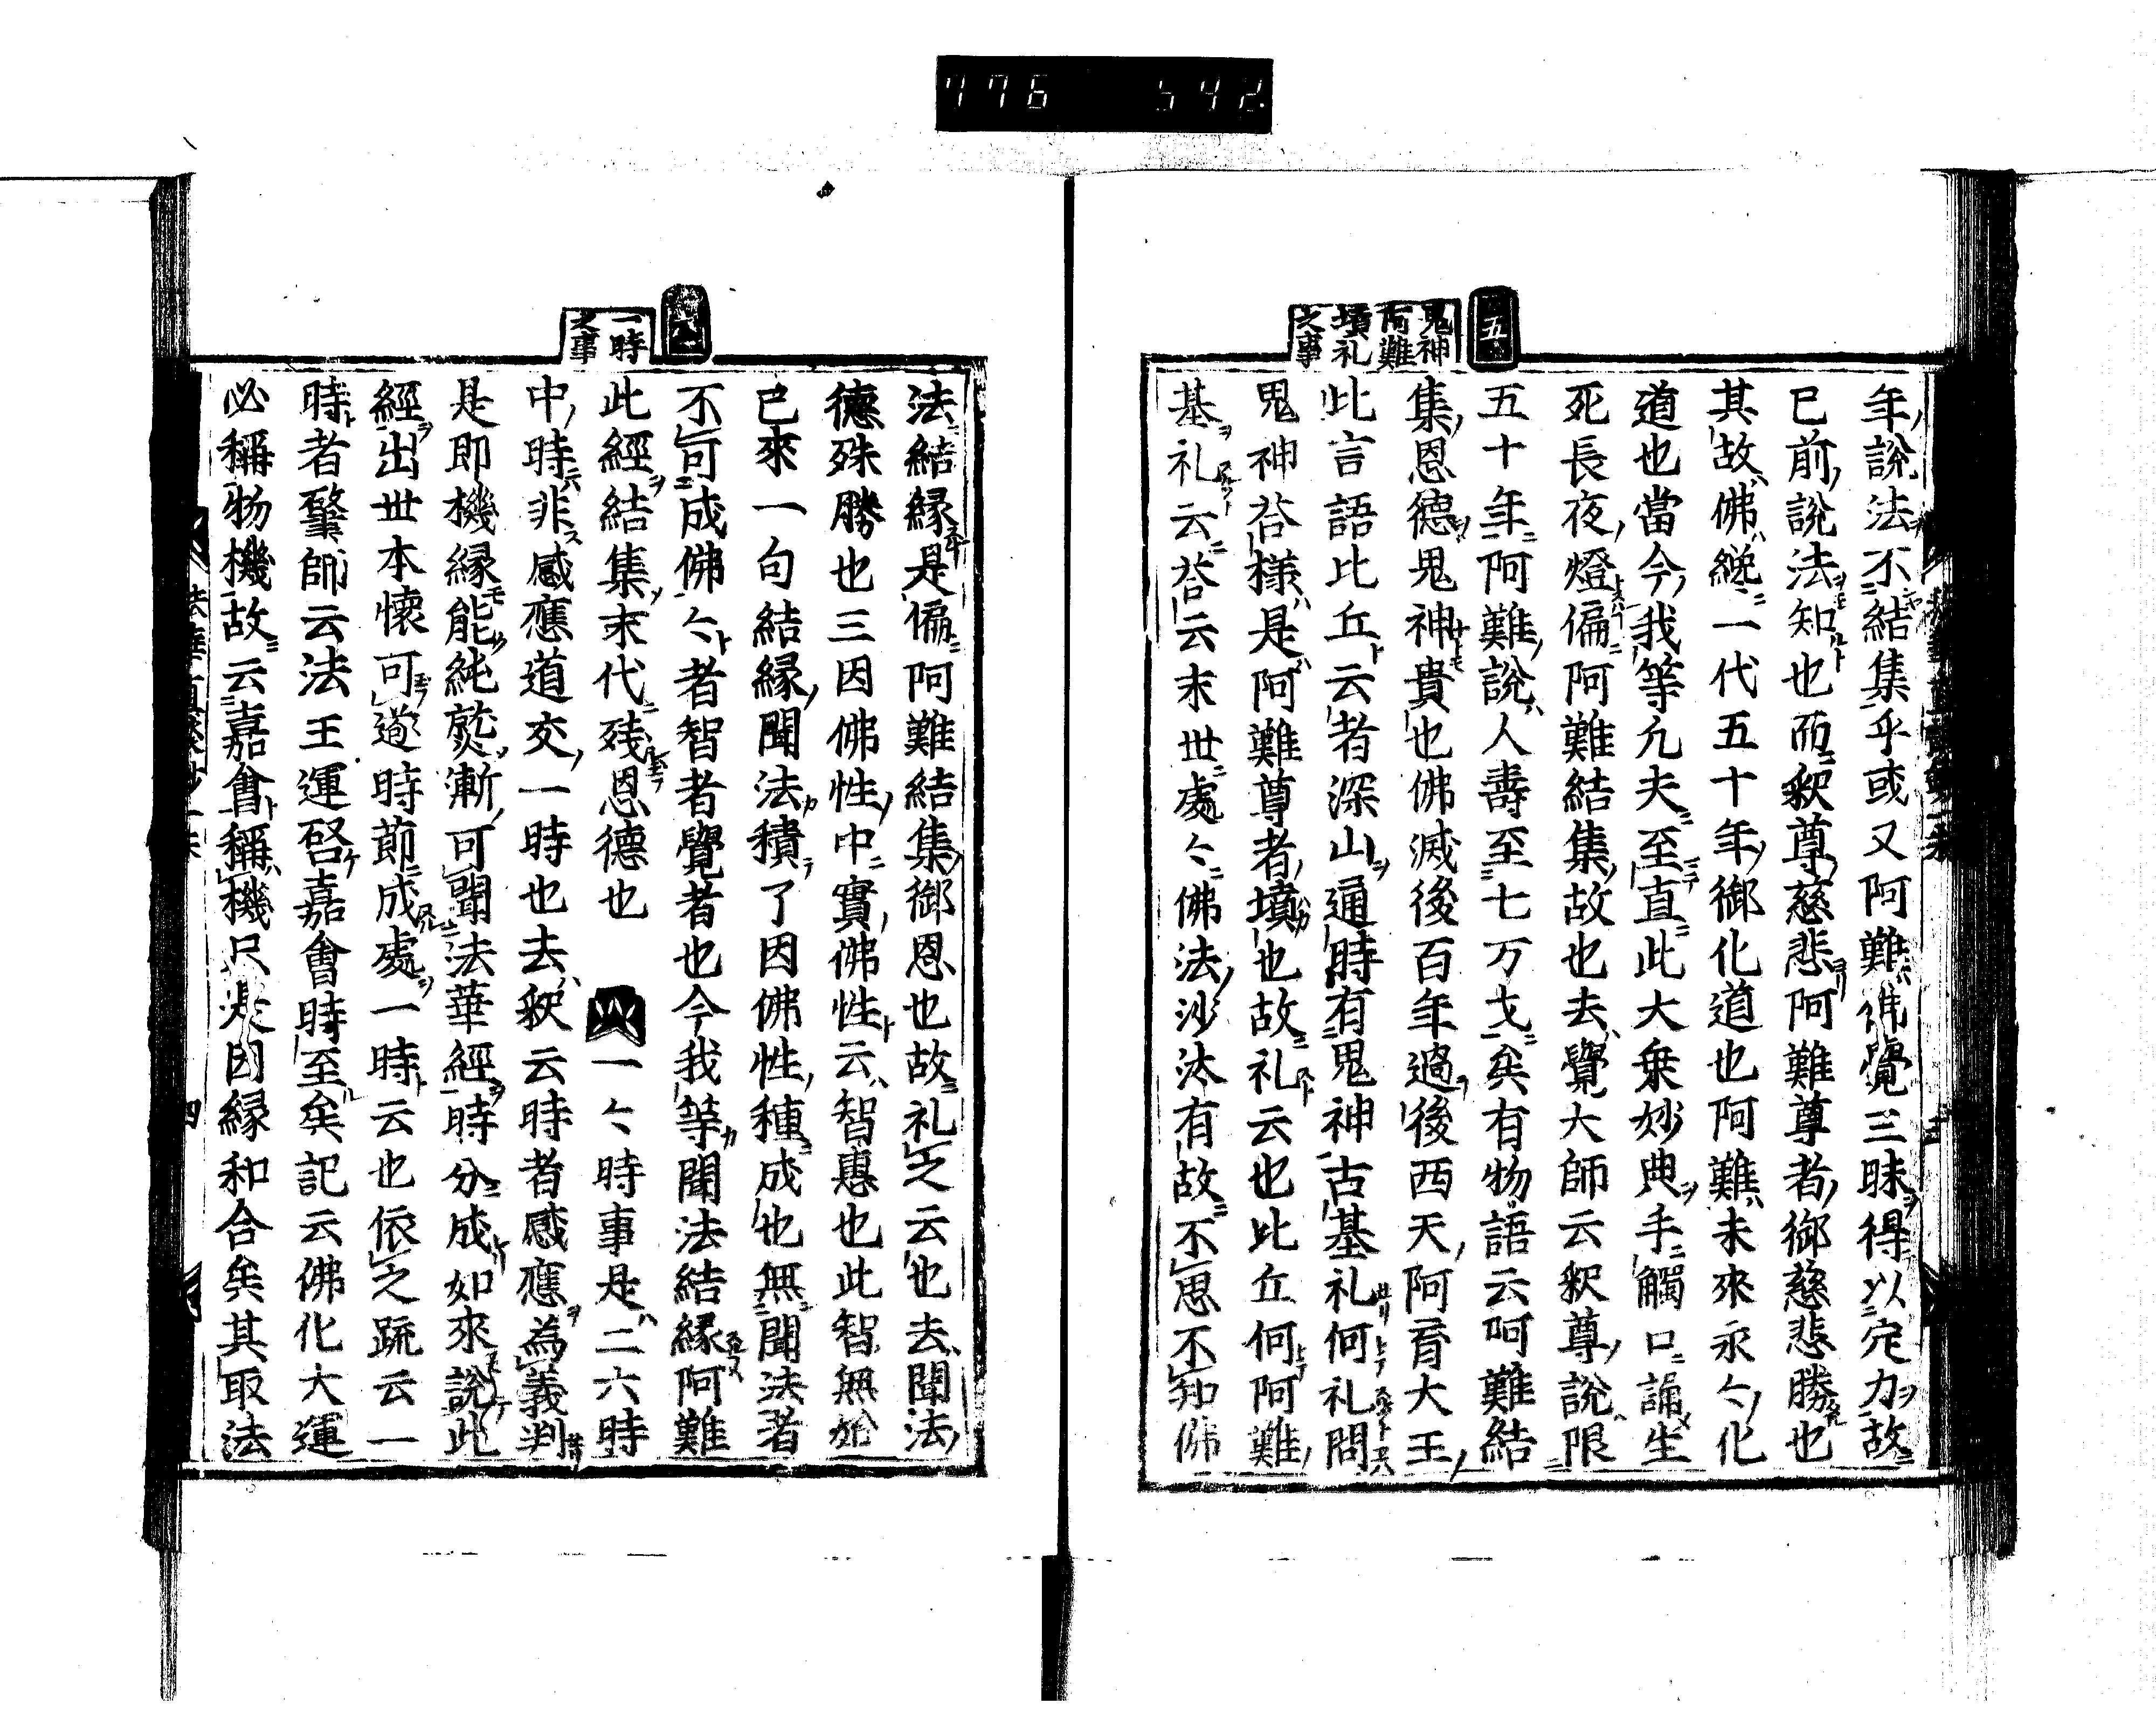 776 542
五
鬼神
阿難
墳礼
之事
年說法不結集乎或又阿難佛覺三昧得以定力故
已前說法知也而釈尊慈悲阿難尊者御慈悲勝也
其故佛総一代五十年御化道也阿難未來永々化
道也當今我等凡夫至直此大乗妙典手觸口誦生
死長夜燈偏阿難結集故也去覺大師云釈尊說限
五十年阿難說人壽至七万才矣有物語云阿難結
集恩德鬼神貴也佛滅後百年過後西天阿育大王
此言語比丘云者深山通時有鬼神古基礼何礼問
鬼神答様是阿難尊者墳也故礼云也比丘何阿難
基礼云答云末世處々佛法沙汰有故不思不知佛
一時
之事
法結縁是偏阿難結集御恩也故礼之云也去聞法
德殊勝也三因佛性中實佛性云智惠也此智無始
已來一句結縁聞法積了因佛性種成也無聞法者
不可成佛々者智者覺者也今我等聞法結縁阿難
此經結集末代残恩德也 一々時事是二六時
中時非感應道交一時也去釈云時者感應為義判
是即機縁能純熟漸可聞法華經時分成如來說此
經出世本懷可道時節成處一時云也依之䟽云一
時者肇師云法王運啓嘉會時至矣記云佛化大運
必稱物機故云嘉會稱機只是因縁和合矣其取法
四